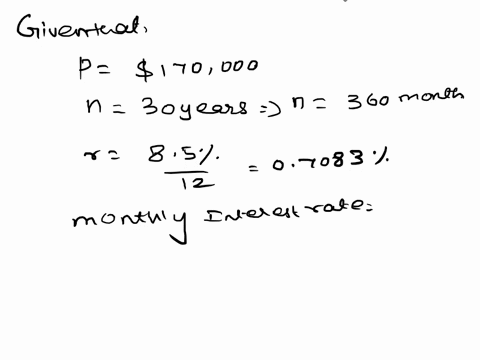 Given that,
P = $170,000
n = 30 years => n = 360 month
r = 8.5% / 12 = 0.7083%
monthly Interest rate =